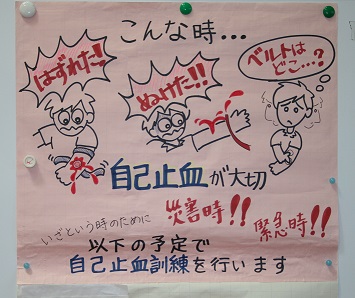 こんな時…
はずれた!
ぬけた!!
ベルトは
どこ…?
自己止血が大切
いざという時のために
災害時!!
緊急時!!
以下の予定で
自己止血訓練を行います